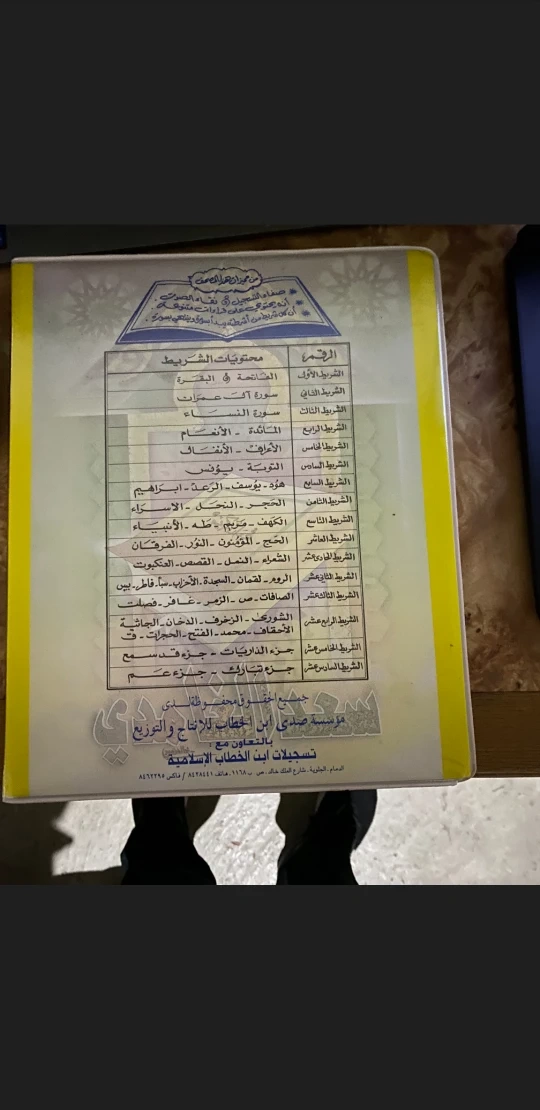 من مميزات هذا المصحف
صفاء التسجيل في نقاء الصوت
أنه يحتوي على قراءات متنوعة
أن كل شريط من أشرطته يبدأ بسورة وينتهي بسورة
الرقم محتويات الشريط
الشريط الأول الفاتحة في البقرة
الشريط الثاني سورة آل عمران
الشريط الثالث سورة النساء
الشريط الرابع المائدة - الأنعام
الشريط الخامس الأعراف - الأنفال
الشريط السادس التوبة - يونس
الشريط السابع هود - يوسف - الرعد - ابراهيم
الشريط الثامن الحجر - النحل - الاسراء
الشريط التاسع الكهف - مريم - طه - الأنبياء
الشريط العاشر الحج - المؤمنون - النور - الفرقان
الشريط الحادي عشر الشعراء - النمل - القصص - العنكبوت
الشريط الثاني عشر الروم - لقمان - السجدة - الأحزاب - سبأ - فاطر - يس
الشريط الثالث عشر الصافات - ص - الزمر - غافر - فصلت
الشريط الرابع عشر الشورى - الزخرف - الدخان - الجاثية
الأحقاف - محمد - الفتح - الحجرات - ق
الشريط الخامس عشر جزء الذاريات - جزء قد سمع
الشريط السادس عشر جزء تبارك - جزء عم
سعد الغامدي
جميع الحقوق محفوظة لدى
مؤسسة صدى ابن الخطاب للإنتاج والتوزيع
بالتعاون مع :
تسجيلات ابن الخطاب الإسلامية
الدمام - الجلوية - شارع الملك خالد - ص ب ١١٦٨ - هاتف ٨٤٢٨٤٤١ / فاكس ٨٤٦٢٢٩٥